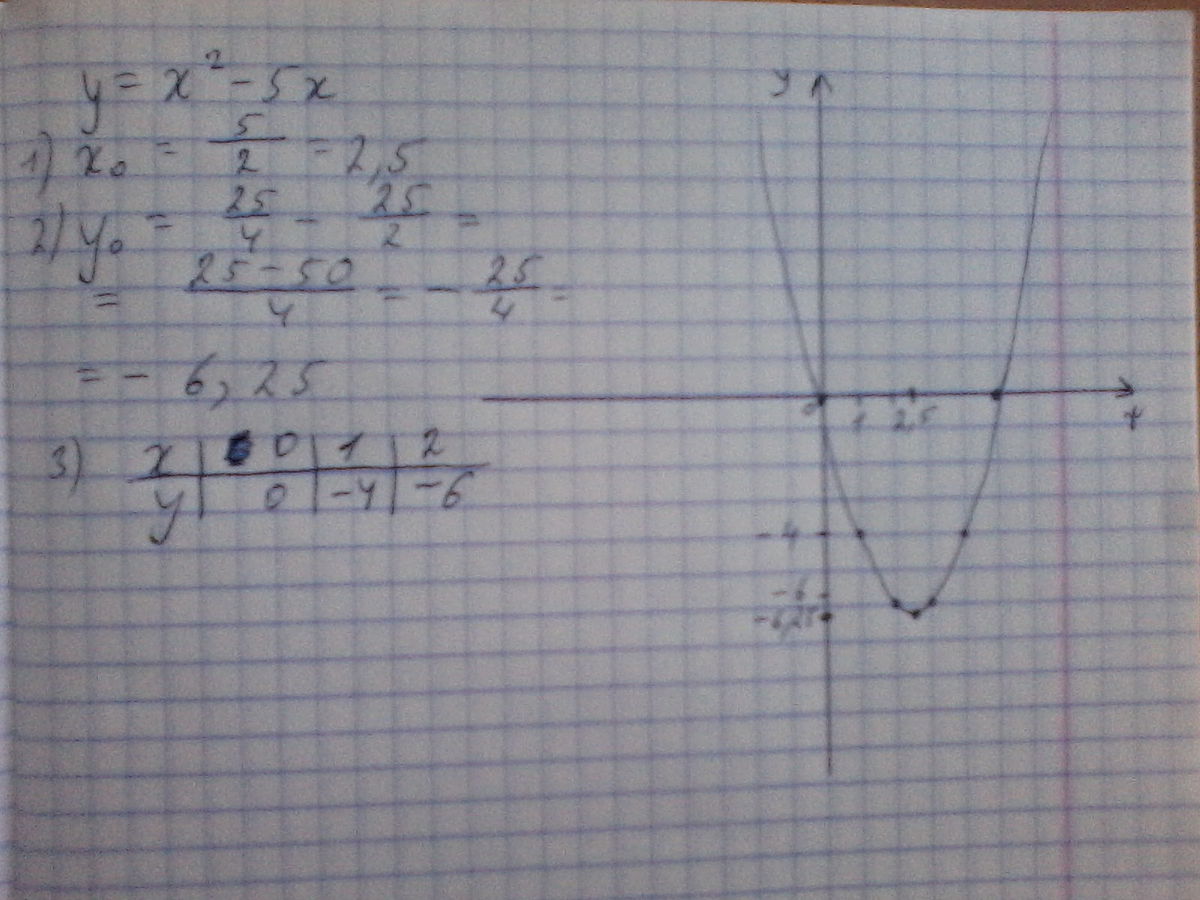 y = x² - 5x
1) x₀ = 5/2 = 2,5
2) y₀ = 25/4 - 25/2 =
= (25 - 50)/4 = - 25/4 =
= - 6,25
3) x | 0 | 1 | 2
y | 0 | -4 | -6
y
0 1 2,5 x
-4
-6
-6,25